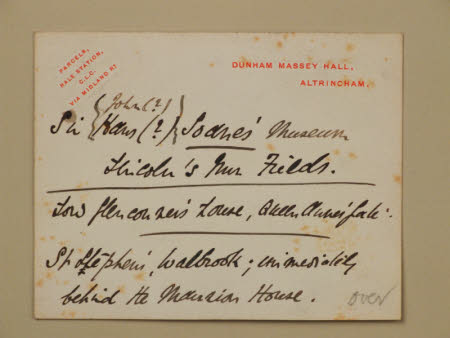 PARCELS,
HALE STATION,
C.L.C.
VIA MIDLAND RY
DUNHAM MASSEY HALL,
ALTRINCHAM.
John (?)
Sir {Hans (?)} Soanes' Museum
Lincoln's Inn Fields.
Lord Glenconner's House, Queen Anne's Gate.
St Stephens', Walbrook; immediately
behind the Mansion House.
over